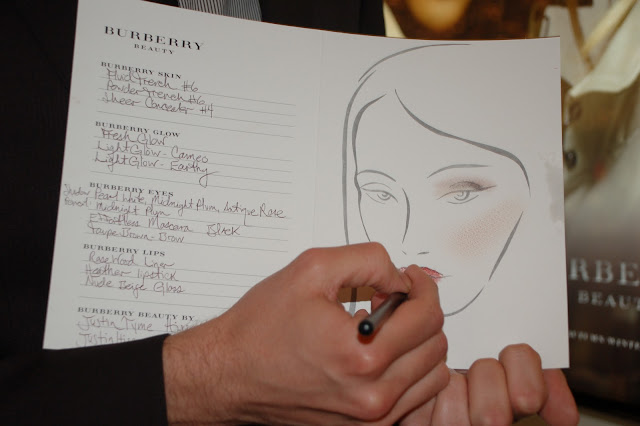 BURBERRY
BEAUTY
BURBERRY SKIN
Fluid Trench #6
Powder Trench #6
Sheer Concealer #4
BURBERRY GLOW
Fresh Glow
Light Glow - Cameo
Light Glow - Earthy
BURBERRY EYES
Shadow Pearl White, Midnight Plum, Antique Rose
Midnight Plum
Effortless Mascara Black
Taupe Brown - Brow
BURBERRY LIPS
Rosewood Liner
Heather lipstick
Nude Beige Gloss
BURBERRY BEAUTY BY
Justin Tyme
RBERR
BEAUTY